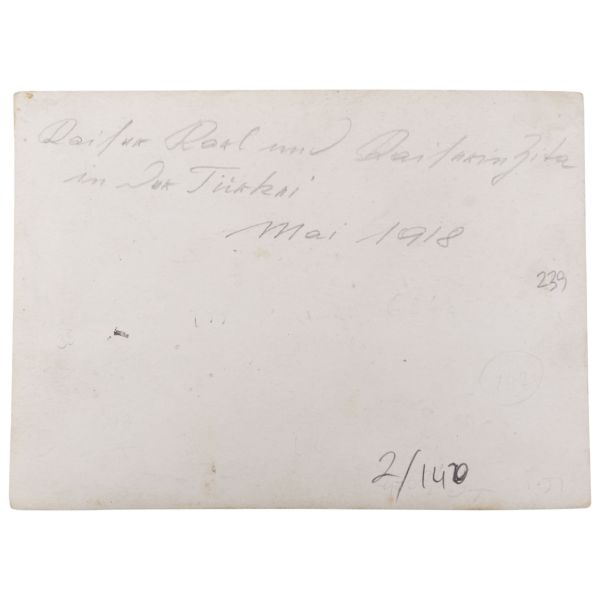 Kaiser Karl und Kaiserin Zita
in der Türkei
Mai 1918
239
2/140